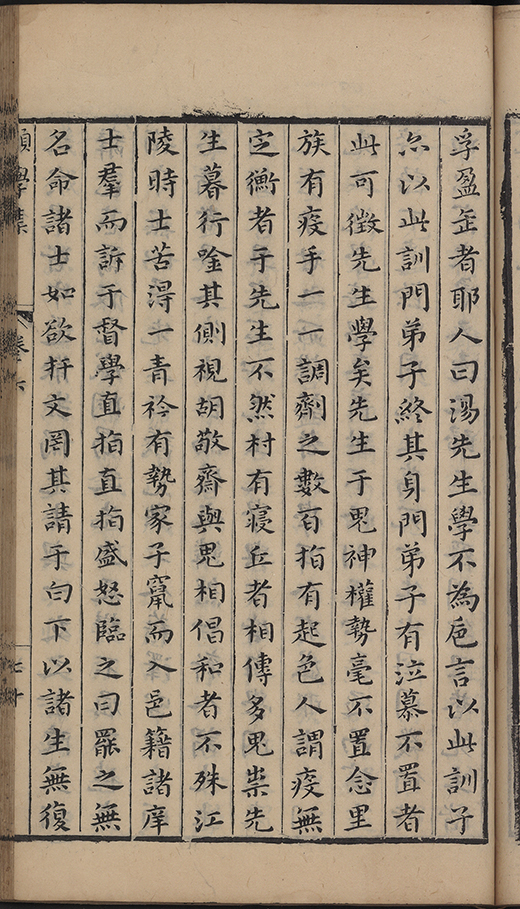 孚盈缶者耶人曰湯先生學不為巵言以此訓子
尒以此訓門弟子終其身門弟子有泣慕不置者
此可徵先生學矣先生于鬼神權勢毫不置念里
族有疫手一一調劑之數百指有起色人謂疫無
定衡者于先生不然村有寢丘者相傳多鬼祟先
生暮行唫其側視胡敬齋與鬼相倡和者不殊江
陵時士苦淂一青衿有勢家子竄而入邑籍諸庠
士羣而訴于督學直指直指盛怒臨之曰罷之無
名命諸士如欲扞文罔其請于白下以諸生無復
學集 卷六 七十